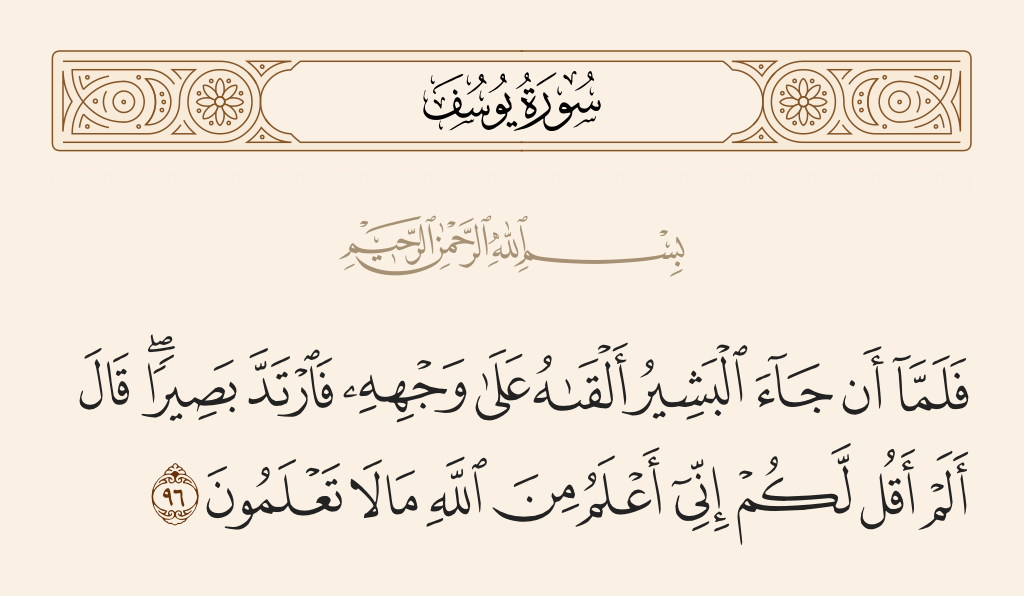 سُورَةُ يُوسُفَ
بِسْمِ ٱللَّهِ ٱلرَّحْمَٰنِ ٱلرَّحِيمِ
فَلَمَّآ أَن جَآءَ ٱلْبَشِيرُ أَلْقَىٰهُ عَلَىٰ وَجْهِهِۦ فَٱرْتَدَّ بَصِيرًۭا ۖ قَالَ
أَلَمْ أَقُل لَّكُمْ إِنِّىٓ أَعْلَمُ مِنَ ٱللَّهِ مَا لَا تَعْلَمُونَ ٩٦